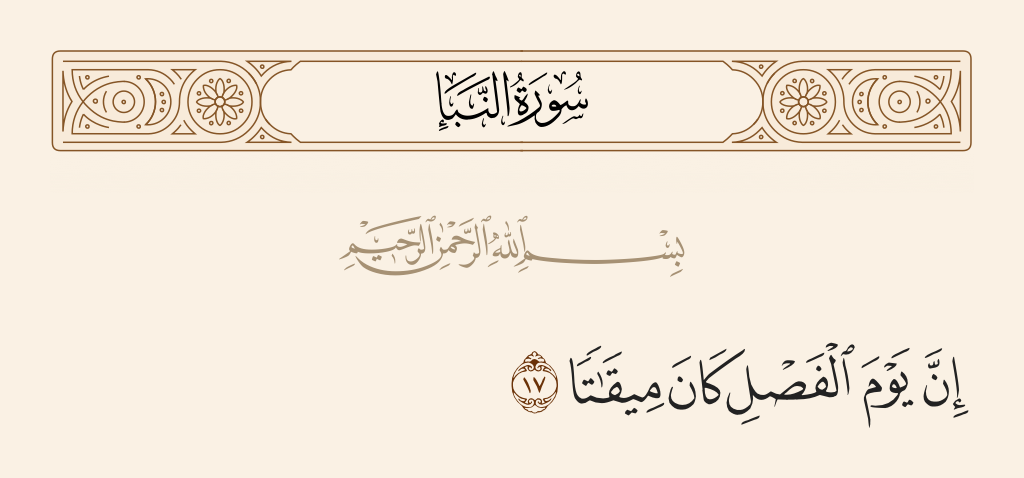 سُورَةُ النَّبَإِ
بِسْمِ ٱللَّهِ ٱلرَّحْمَٰنِ ٱلرَّحِيمِ
إِنَّ يَوْمَ ٱلْفَصْلِ كَانَ مِيقَٰتًا ١٧